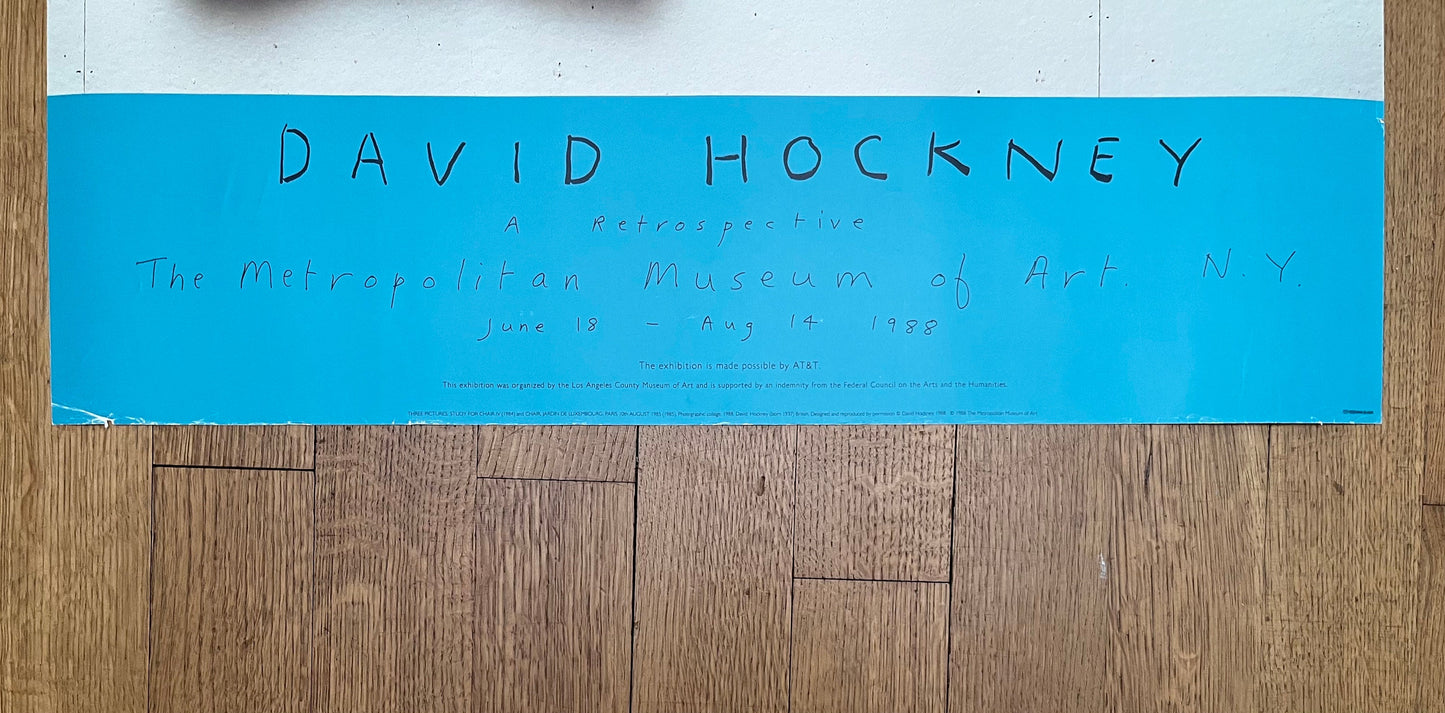 DAVID HOCKNEY
A Retrospective
The Metropolitan Museum of Art. N.Y.
June 18 - Aug 14 1988
The exhibition is made possible by AT&T.
This exhibition was organized by the Los Angeles County Museum of Art and is supported by an indemnity from the Federal Council on the Arts and the Humanities.
THREE PICTURES: STUDY FOR CHAIR, IV (1984) and CHAIR, JARDIN DE LUXEMBOURG, PARIS 10th AUGUST 1985 (1985), Photographic collage, 1988, David Hockney (born 1937) British. Designed and reproduced by permission © David Hockney 1988 © 1988 The Metropolitan Museum of Art